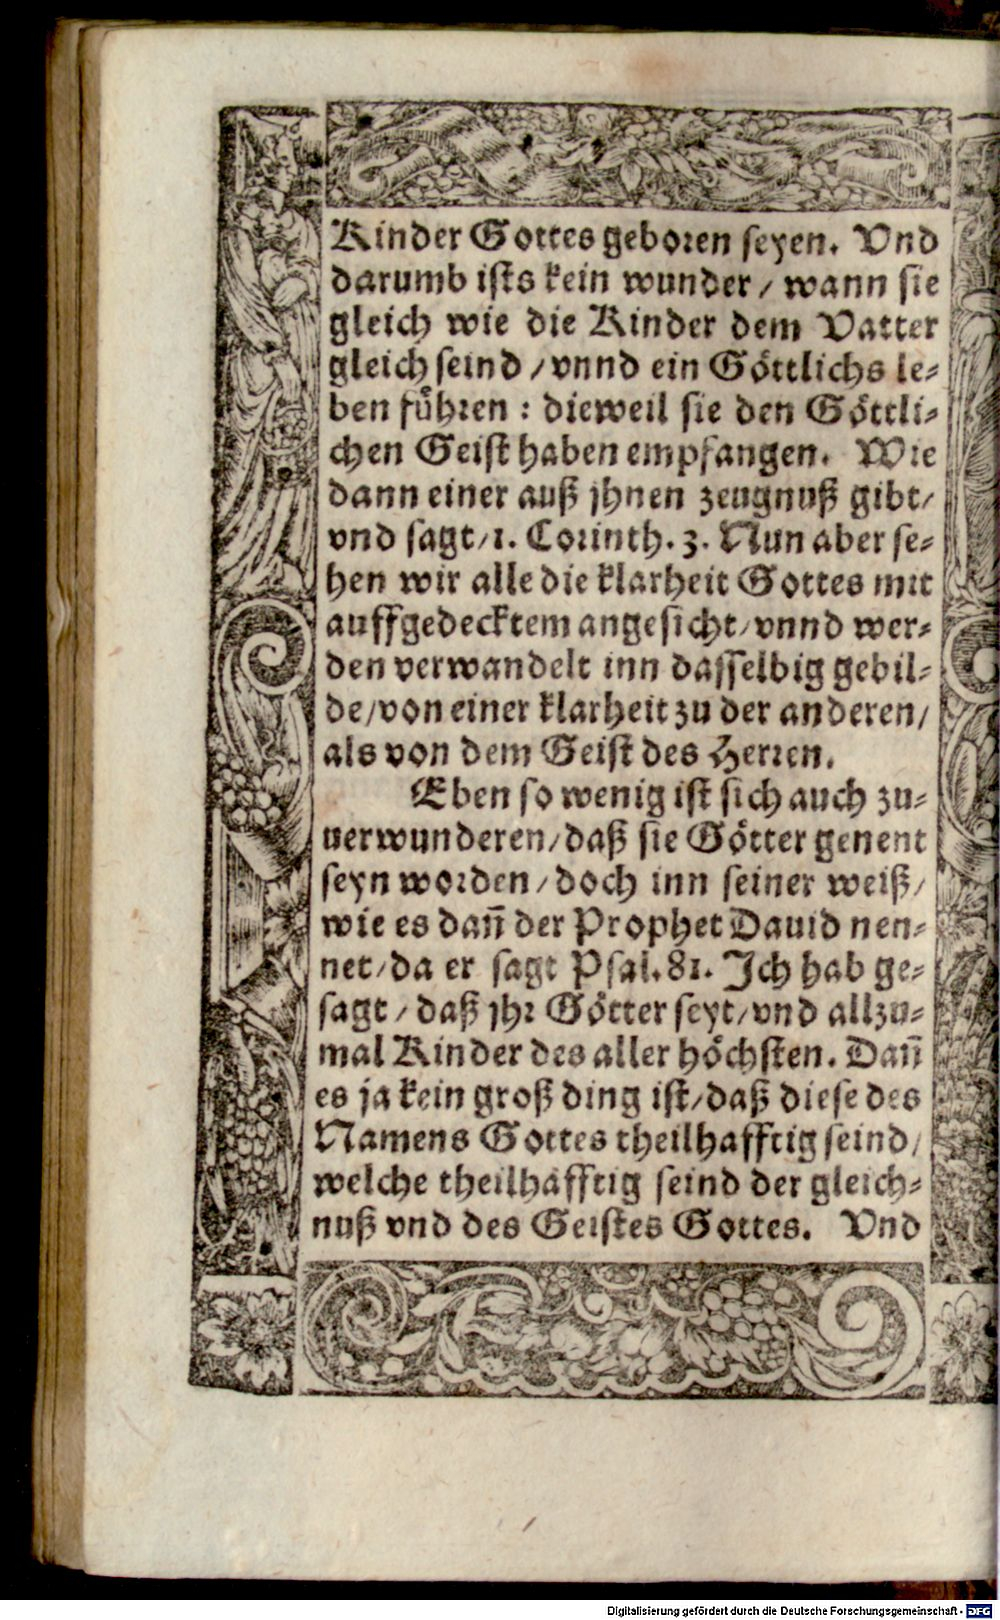 Kinder Gottes geboren seyen. Vnd
darumb ists kein wunder / wann sie
gleich wie die Kinder dem Vatter
gleich seind / vnnd ein Göttlichs le-
ben fuͤhren : dieweil sie den Göttli-
chen Geist haben empfangen. Wie
dann einer auß jhnen zeugnuß gibt/
vnd sagt/1. Corinth. 3. Nun aber se-
hen wir alle die klarheit Gottes mit
auffgedecktem angesicht/vnnd wer-
den verwandelt inn dasselbig gebil-
de/von einer klarheit zu der anderen/
als von dem Geist des Herren.
Eben so wenig ist sich auch zu-
uerwunderen/daß sie Götter genent
seyn worden/doch inn seiner weiß/
wie es dañ der Prophet Dauid nen-
net/da er sagt Psal. 81. Ich hab ge-
sagt / daß jhr Götter seyt/vnd allzu-
mal Kinder des aller höchsten. Dañ
es ja kein groß ding ist/daß diese des
Namens Gottes theilhafftig seind/
welche theilhafftig seind der gleich-
nuß vnd des Geistes Gottes. Vnd
Digitalisierung gefördert durch die Deutsche Forschungsgemeinschaft - DFG